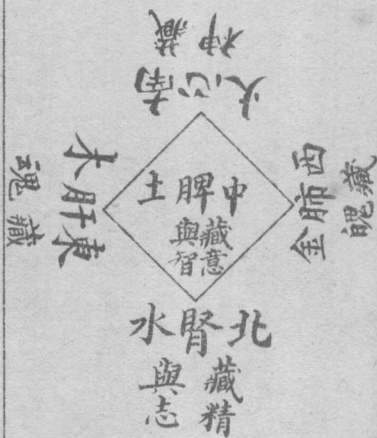 南心火
藏神
東肝木
藏魂
中脾土
藏意
與智
西肺金
藏魄
北腎水
藏精
與志